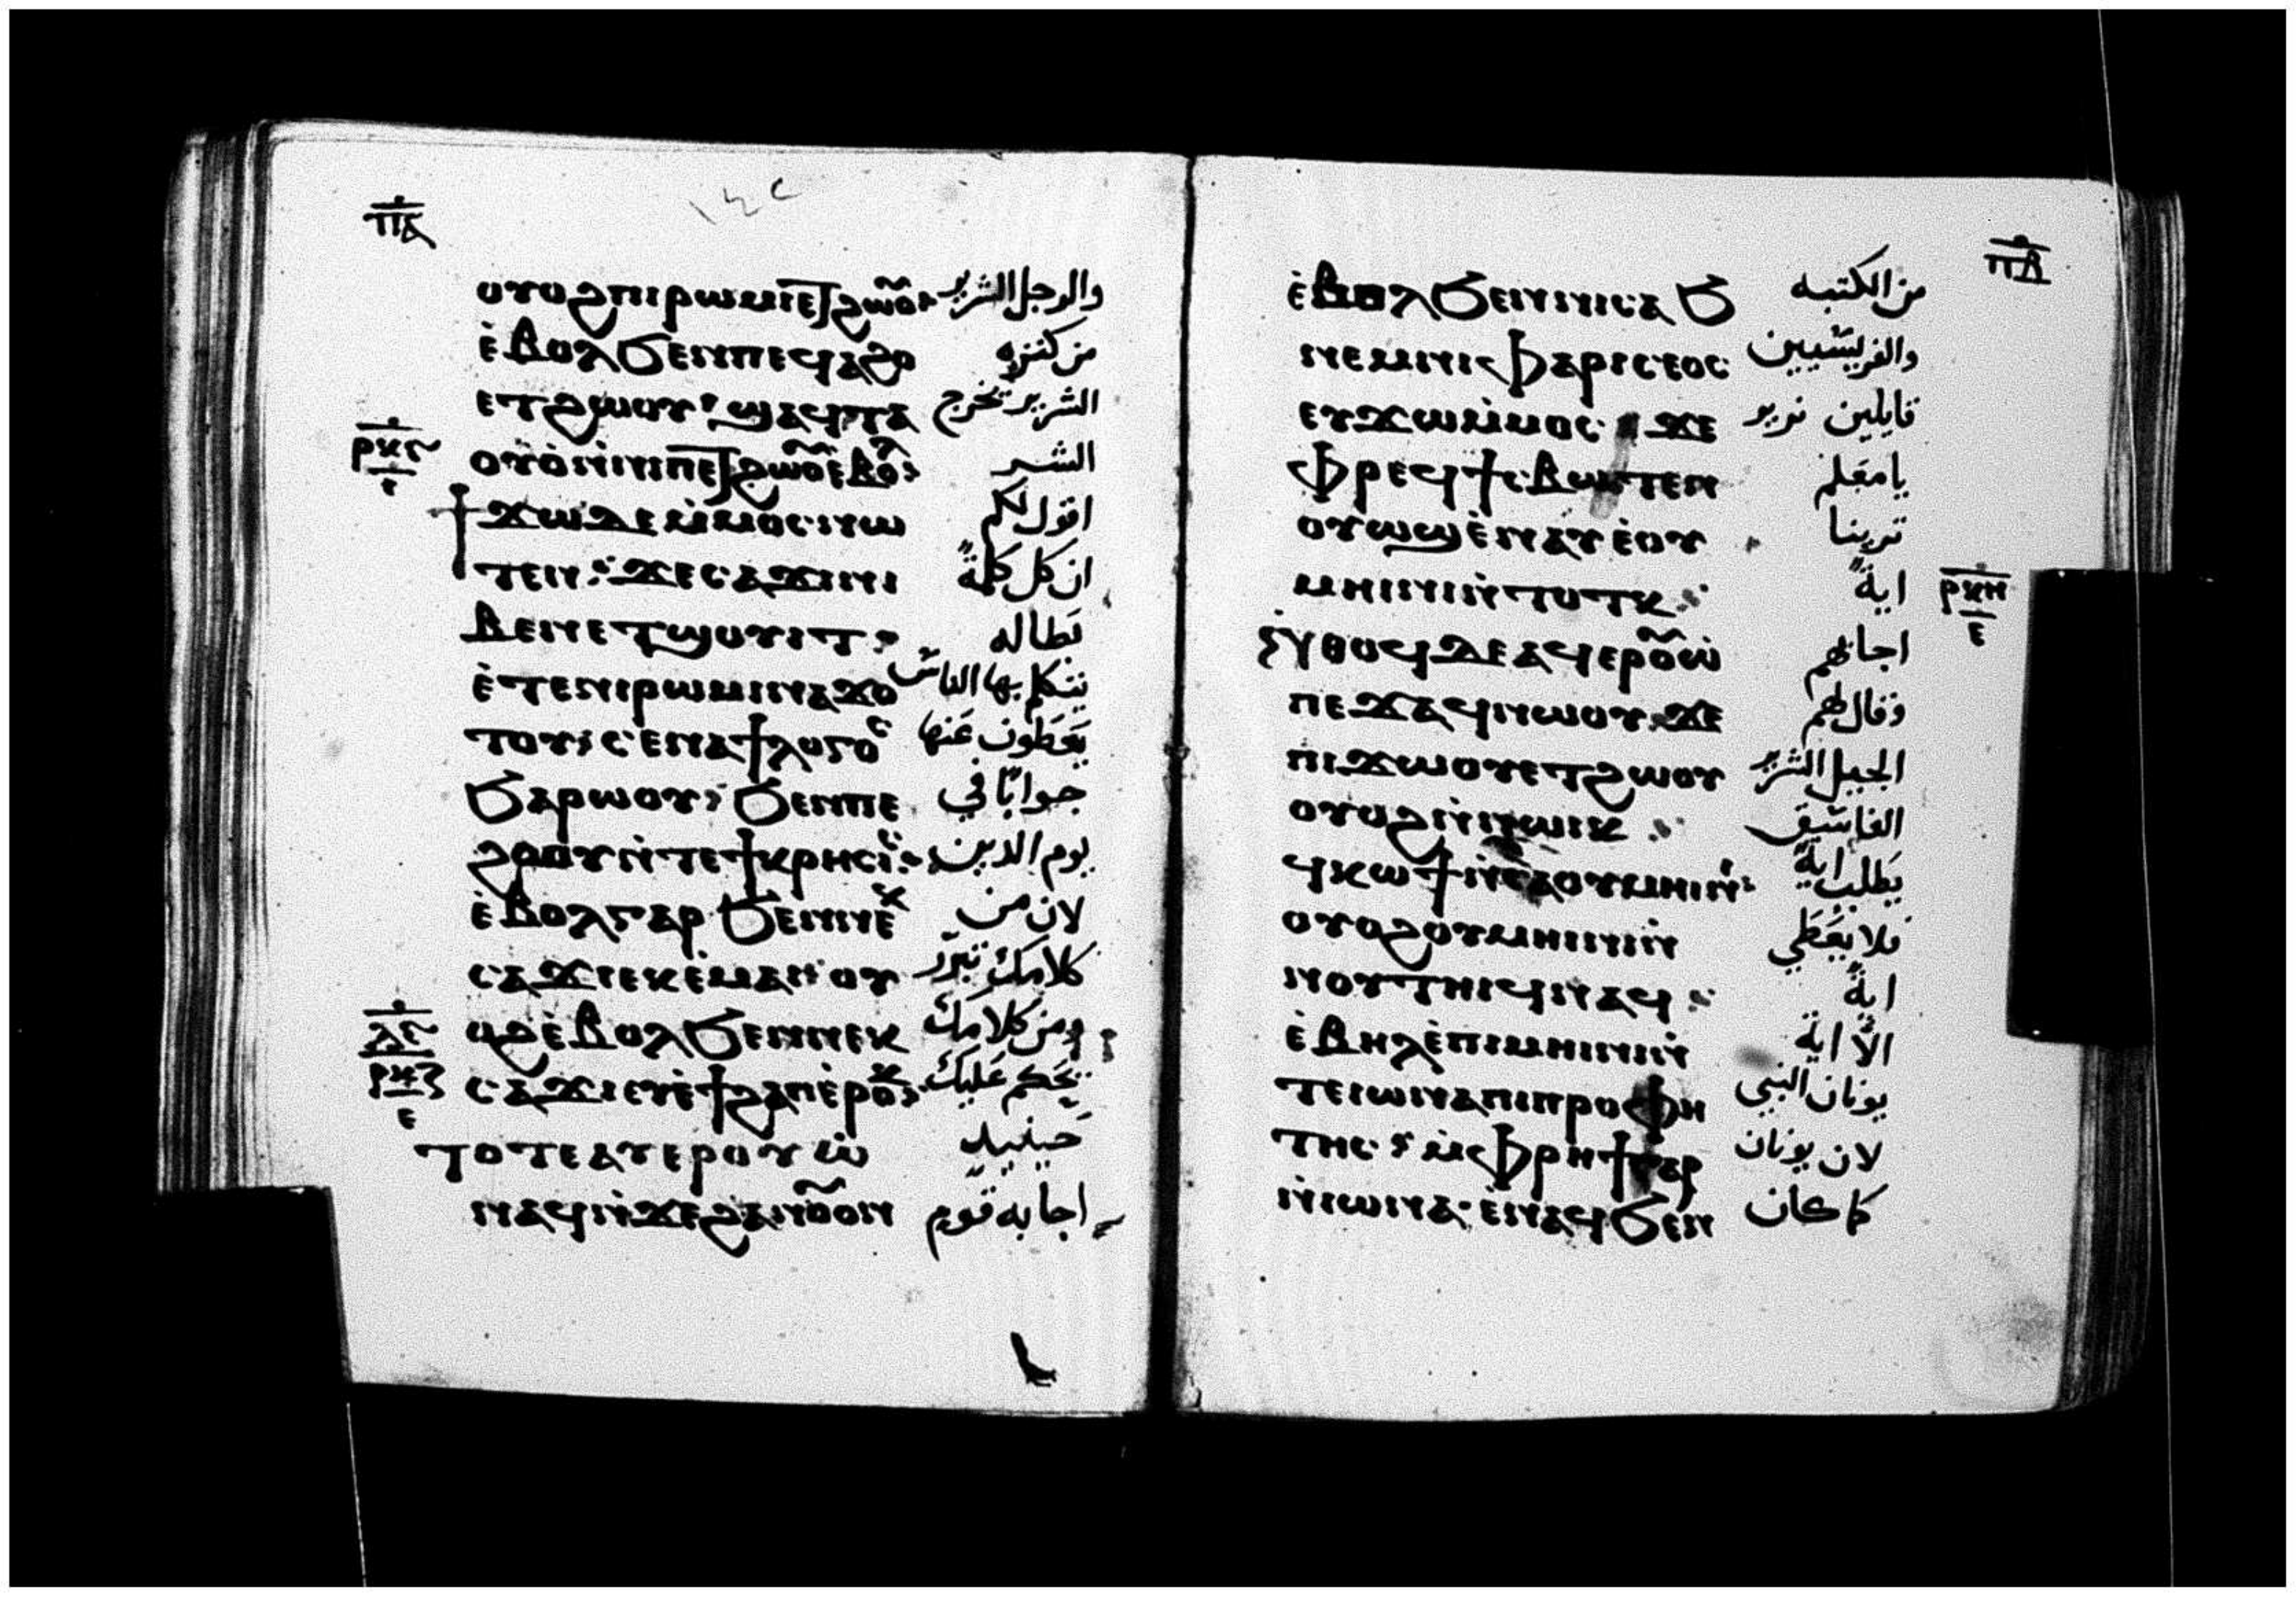 ⲡⲁ
ⲟⲩⲟϩ ⲡⲓⲣⲱⲙⲓ ⲉⲧϩⲱⲟⲩ والرجل الشرير
ⲉ̀ⲃⲟⲗ ϧⲉⲛ ⲡⲉϥⲁϩⲟ من كنزه
ⲉⲧϩⲱⲟⲩ ϣⲁϥⲧⲁ الشرير تخرج
ⲣⲕⲋ ⲟⲩⲟ̀ ⲛ̀ⲛⲓⲡⲉⲧϩⲱⲟⲩ ⲉ̀ⲃⲟⲗ الشر
ϯϫⲱ ⲇⲉ ⲙ̀ⲙⲟⲥ ⲛⲱ اقول لكم
ⲧⲉⲛ ϫⲉ ⲥⲁϫⲓ ⲛⲓ ان كل كلمة
ⲃⲉⲛ ⲉⲧϣⲟⲩⲓⲧ بطاله
ⲉ̀ⲧⲉ ⲛⲓⲣⲱⲙⲓ ⲛⲁϫⲟ يتكلم بها الناس
ⲧⲟⲩ ⲥⲉⲛⲁϯⲗⲟⲅⲟⲥ يعطون عنها
ϧⲁⲣⲱⲟⲩ ϧⲉⲛ ⲡⲉ جوابًا في
ϩⲟⲟⲩ ⲛ̀ⲧⲉ ϯⲕⲣⲏⲥⲓⲥ يوم الدين
ⲉ̀ⲃⲟⲗ ⲅⲁⲣ ϧⲉⲛ ⲛⲉⲕ لان من
ⲥⲁϫⲓ ⲉⲕⲉ̀ⲙⲁⲓ ⲟⲩ كلامك تبرر
ⲗⲋ ⲟϩ ⲉ̀ⲃⲟⲗ ϧⲉⲛ ⲛⲉⲕ ومن كلامك
ⲣⲕⲍ ⲥⲁϫⲓ ⲉⲩⲉ̀ϯϩⲁⲡ ⲉ̀ⲣⲟⲕ يحكم عليك
ⲧⲟⲧⲉ ⲁⲩⲉⲣⲟⲩⲱ̀ حينيد
ⲛⲁϥ ⲛ̀ϫⲉ ϩⲁⲛⲟⲩⲟⲛ اجابه قوم
ⲡⲃ
ⲉ̀ⲃⲟⲗ ϧⲉⲛ ⲛⲓⲥⲁϧ من الكتبه
ⲛⲉⲙ ⲛⲓⲫⲁⲣⲓⲥⲉⲟⲥ والفريسيين
ⲉⲩϫⲱ ⲙ̀ⲙⲟⲥ ϫⲉ قايلين نريد
ⲫⲣⲉϥϯⲥⲃⲱ ⲧⲉⲛ يامعلم
ⲟⲩⲱϣ ⲉ̀ⲛⲁⲩ ⲉ̀ⲟⲩ ترينا
ⲙⲏⲓⲛⲓ ⲛ̀ⲧⲟⲧⲕ اية ⲣⲕⲏ
ⲛ̀ⲑⲟϥ ⲇⲉ ⲁϥⲉⲣⲟⲩⲱ̀ اجابهم
ⲡⲉϫⲁϥ ⲛⲱⲟⲩ ϫⲉ وقال لهم
ⲡⲓϫⲱⲟⲩ ⲉⲧϩⲱⲟⲩ الجيل الشرير
ⲟⲩⲟϩ ⲛ̀ⲛⲱⲓⲕ الفاسق
ϥⲕⲱϯ ⲛ̀ⲥⲁ ⲟⲩⲙⲏⲓⲛⲓ يطلب اية
ⲟⲩⲟϩ ⲟⲩⲙⲏⲓⲛⲓ ⲛ̀ فلا يعطي
ⲛⲟⲩⲧⲏⲓϥ ⲛⲁϥ اية
ⲉ̀ⲃⲏⲗ ⲉ̀ⲡⲓⲙⲏⲓⲛⲓ ⲛ̀ الا اية
ⲧⲉ ⲓⲱⲛⲁ ⲡⲓⲡⲣⲟⲫⲏ يونان النبي
ⲧⲏⲥ ⲙ̀ⲫⲣⲏϯ ⲅⲁⲣ لان يونان
ⲛ̀ⲓⲱⲛⲁ ⲉ̀ⲛⲁϥϧⲉⲛ كما كان